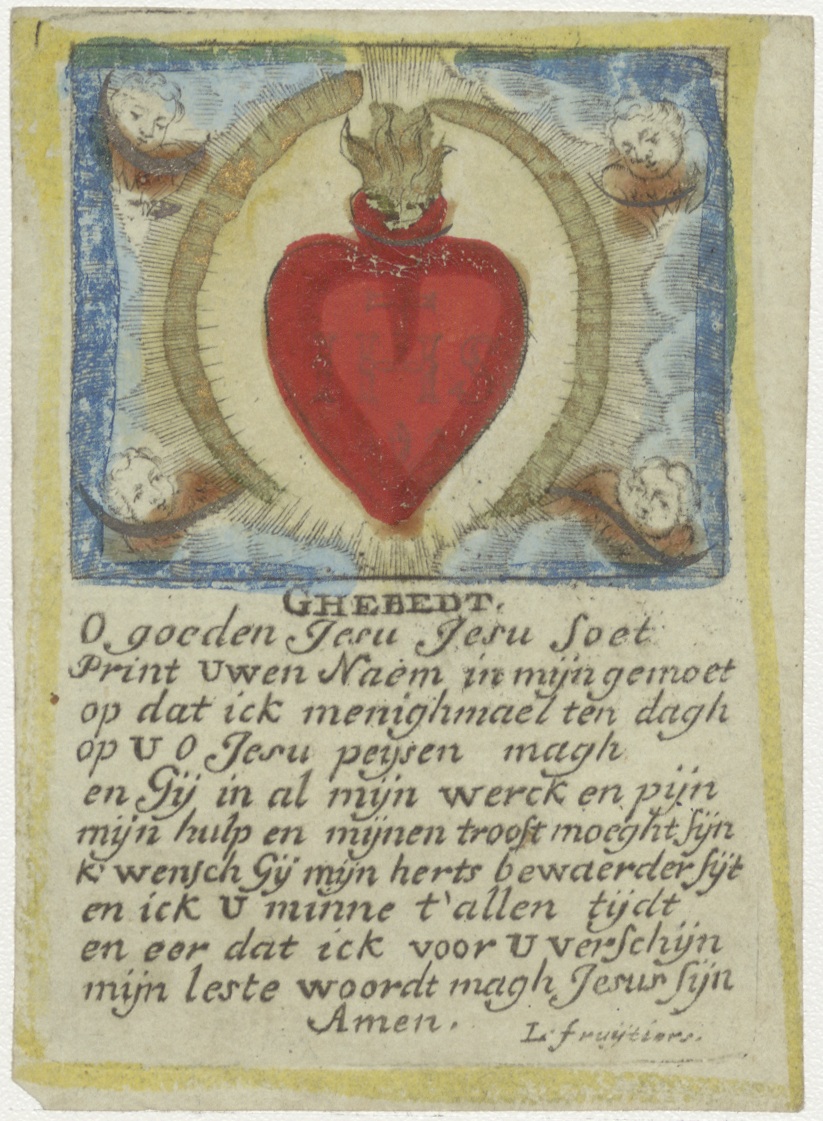 IHS
GHEBEDT.
O goeden Jesu Jesu soet
Print Uwen Naem in mijn gemoet
op dat ick menighmael ten dagh
op U O Jesu peijsen magh
en Gij in al mijn werck en pijn
mijn hulp en mijnen troost moeght sijn
K' wensch Gij mijn herts bewaerder sijt
en ick U minne t'allen tijdt
en eer dat ick voor U verschijn
mijn leste woordt magh Jesus sijn
Amen.
L. fruijtiers.